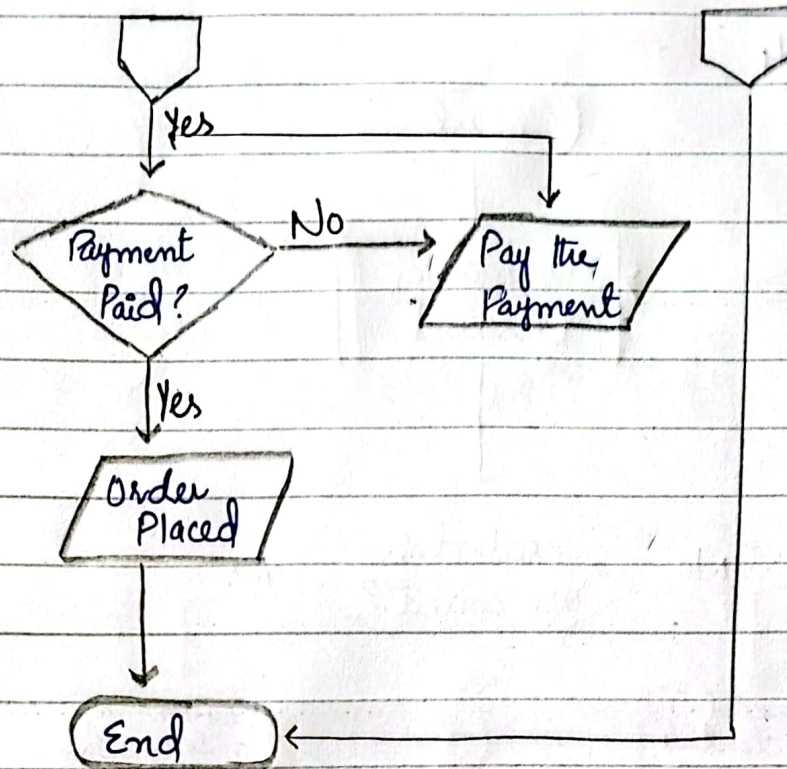 Yes
No
Payment
Paid?
Pay the
Payment
Yes
Order
Placed
End